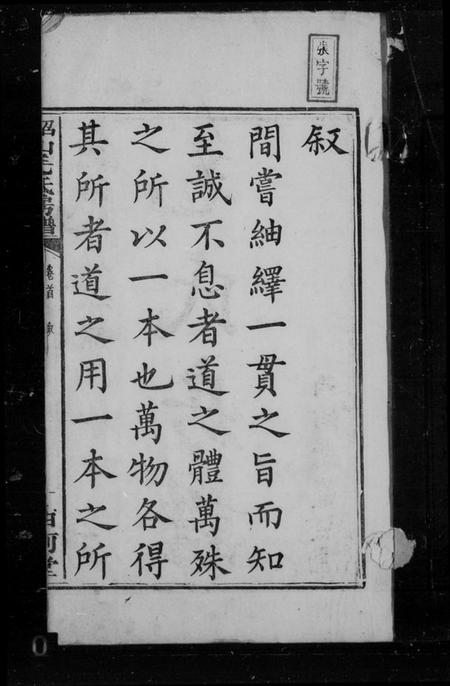 張字號
叙
間嘗紬繹一貫之旨而知
至誠不息者道之體萬殊
之所以一本也萬物各得
其所者道之用一本之所
韶山毛氏房譜
卷首
西河堂
0